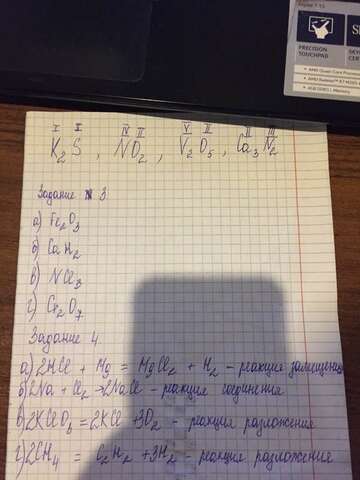 PRECISION
TOUCHPAD
I I IV II V II II III
K₂S, NO₂, V₂O₅, Ca₃N₂
Задание № 3
а) Fe₂O₃
б) CaH₂
в) NCl₃
г) Cr₂O₇
Задание 4
а) 2HCl + Mg = MgCl₂ + H₂ - реакция замещения
б) 2Na + Cl₂ → 2NaCl - реакция соединения
в) 2KClO₃ = 2KCl + 3O₂ - реакция разложения
г) 2CH₄ = C₂H₂ + 3H₂ - реакция разложения